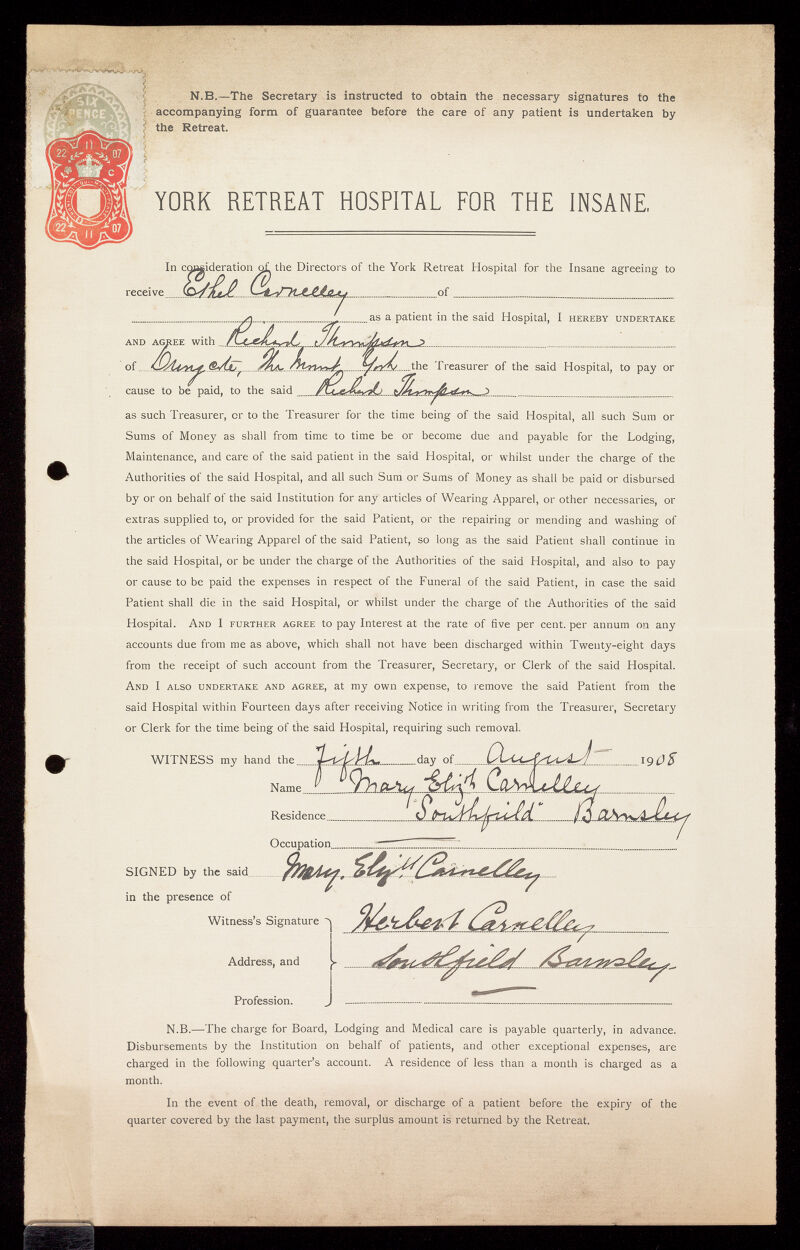 N.B.—The Secretary is instructed to obtain the necessary signatures to the
accompanying form of guarantee before the care of any patient is undertaken by
the Retreat.
SIX
PENCE
22 11 07
C
22 11 07
YORK RETREAT HOSPITAL FOR THE INSANE.
In consideration of the Directors of the York Retreat Hospital for the Insane agreeing to
receive Ethel Carnelley of
as a patient in the said Hospital, I HEREBY UNDERTAKE
AND AGREE with Richard Thompson
of Dringcote, The Mount, York the Treasurer of the said Hospital, to pay or
cause to be paid, to the said Richard Thompson
as such Treasurer, or to the Treasurer for the time being of the said Hospital, all such Sum or
Sums of Money as shall from time to time be or become due and payable for the Lodging,
Maintenance, and care of the said patient in the said Hospital, or whilst under the charge of the
Authorities of the said Hospital, and all such Sum or Sums of Money as shall be paid or disbursed
by or on behalf of the said Institution for any articles of Wearing Apparel, or other necessaries, or
extras supplied to, or provided for the said Patient, or the repairing or mending and washing of
the articles of Wearing Apparel of the said Patient, so long as the said Patient shall continue in
the said Hospital, or be under the charge of the Authorities of the said Hospital, and also to pay
or cause to be paid the expenses in respect of the Funeral of the said Patient, in case the said
Patient shall die in the said Hospital, or whilst under the charge of the Authorities of the said
Hospital. AND I FURTHER AGREE to pay Interest at the rate of five per cent. per annum on any
accounts due from me as above, which shall not have been discharged within Twenty-eight days
from the receipt of such account from the Treasurer, Secretary, or Clerk of the said Hospital.
AND I ALSO UNDERTAKE AND AGREE, at my own expense, to remove the said Patient from the
said Hospital within Fourteen days after receiving Notice in writing from the Treasurer, Secretary
or Clerk for the time being of the said Hospital, requiring such removal.
WITNESS my hand the Fifth day of August 1908
Name Mary Elizth Carnelley
Residence "Southfield" Barnsley
Occupation
SIGNED by the said Mary. Elizth Carnelley
in the presence of
Witness's Signature Herbert Carnelley
Address, and Southfield Barnsley
Profession.
N.B.—The charge for Board, Lodging and Medical care is payable quarterly, in advance.
Disbursements by the Institution on behalf of patients, and other exceptional expenses, are
charged in the following quarter's account. A residence of less than a month is charged as a
month.
In the event of the death, removal, or discharge of a patient before the expiry of the
quarter covered by the last payment, the surplus amount is returned by the Retreat.